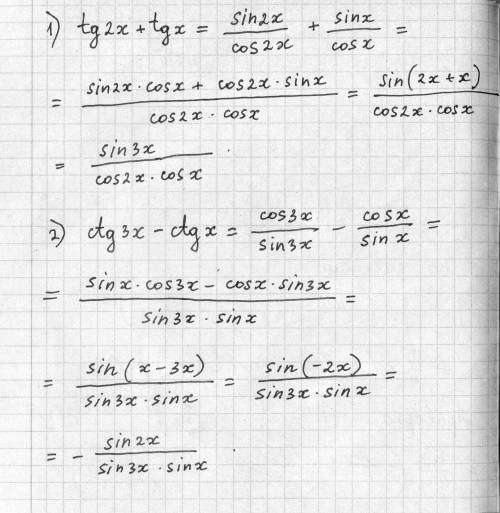 1) tg2x + tgx = sin2x/cos2x + sinx/cosx =
= (sin2x · cosx + cos2x · sinx)/(cos2x · cosx) = sin(2x+x)/(cos2x · cosx)
= sin3x/(cos2x · cosx) .
2) ctg3x − ctgx = cos3x/sin3x − cosx/sinx =
= (sinx · cos3x − cosx · sin3x)/(sin3x · sinx) =
= sin(x−3x)/(sin3x · sinx) = sin(−2x)/(sin3x · sinx) =
= − sin2x/(sin3x · sinx) .